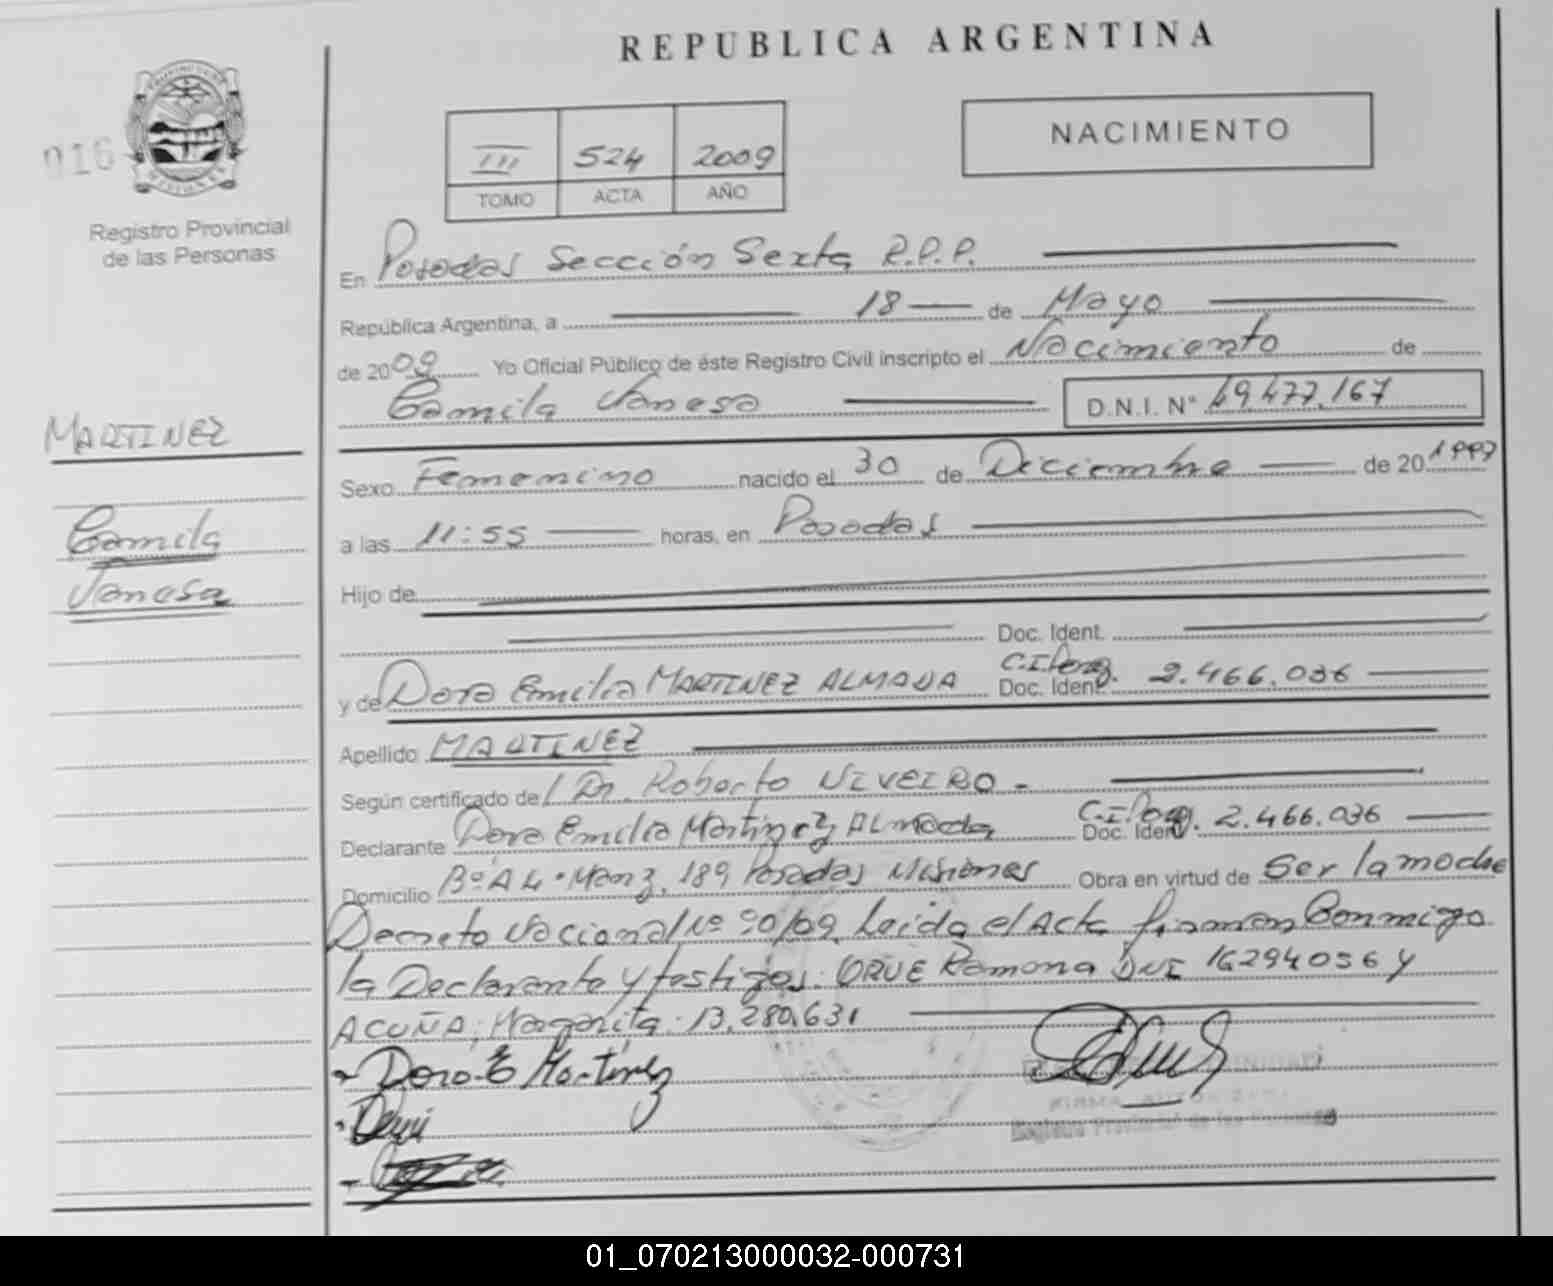 REPUBLICA ARGENTINA
016
Registro Provincial
de las Personas
III 524 2009
TOMO ACTA AÑO
NACIMIENTO
En Posadas Sección Sexta R.P.P.
República Argentina, a 18 de Mayo
de 2009 Yo Oficial Público de éste Registro Civil inscripto el Nacimiento de
Camila Vanesa D.N.I. N° 49.477.167
MARTINEZ
Sexo Femenino nacido el 30 de Diciembre de 20 1997
Camila
a las 11:55 horas, en Posadas
Vanesa
Hijo de
Doc. Ident.
y de Dora Emilia MARTINEZ ALMADA Doc. Ident. C.I.Parag. 2.466.036
Apellido MARTINEZ
Según certificado de Dr. Roberto NIVEIRO -
Declarante Dora Emilia Martinez ALmada Doc. Ident. C.I.Parag. 2.466.036
Domicilio B° A4 Manz. 189 Posadas Misiones Obra en virtud de Ser la madre
Decreto Nacional N° 90/09 Leida el Acta firman Conmigo
la Declarante y testigos: ORUE Ramona DNI 16294056 y
ACUÑA, Margarita 13.280.631
Dora E Martinez
FIRMA AUTORIZADA
Registro Provincial de las Personas
01_070213000032-000731